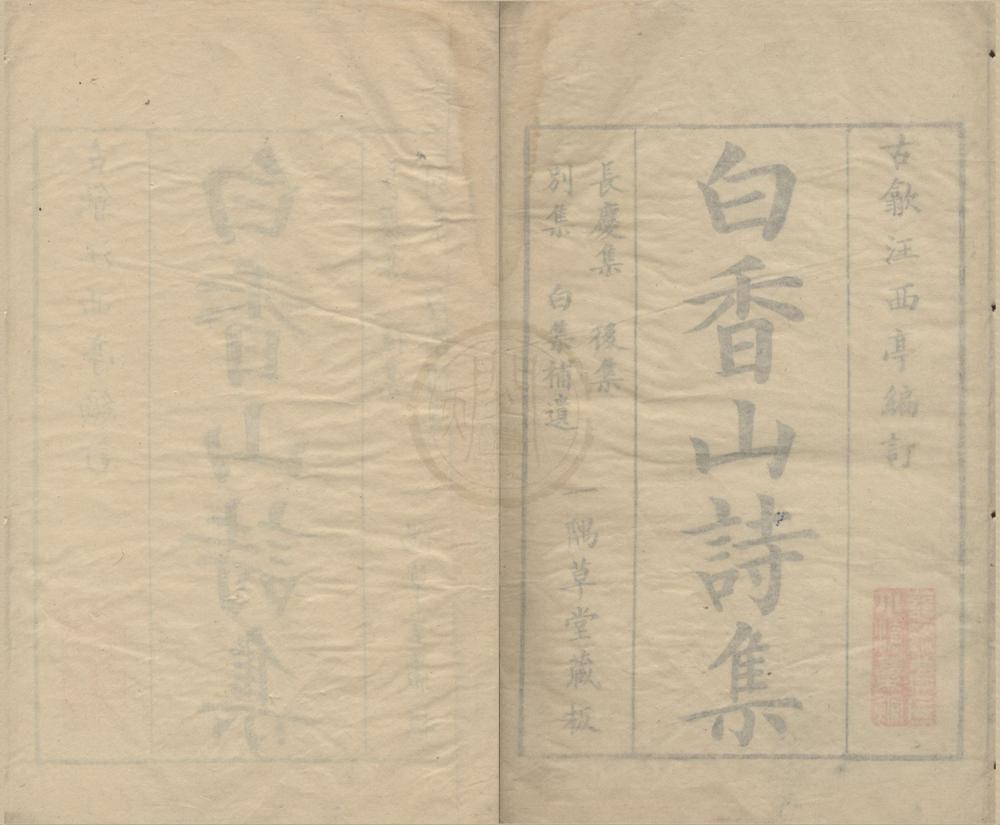 古歙汪西亭編訂
白香山詩集
長慶集 後集
別集 白集補遺
一隅草堂藏板